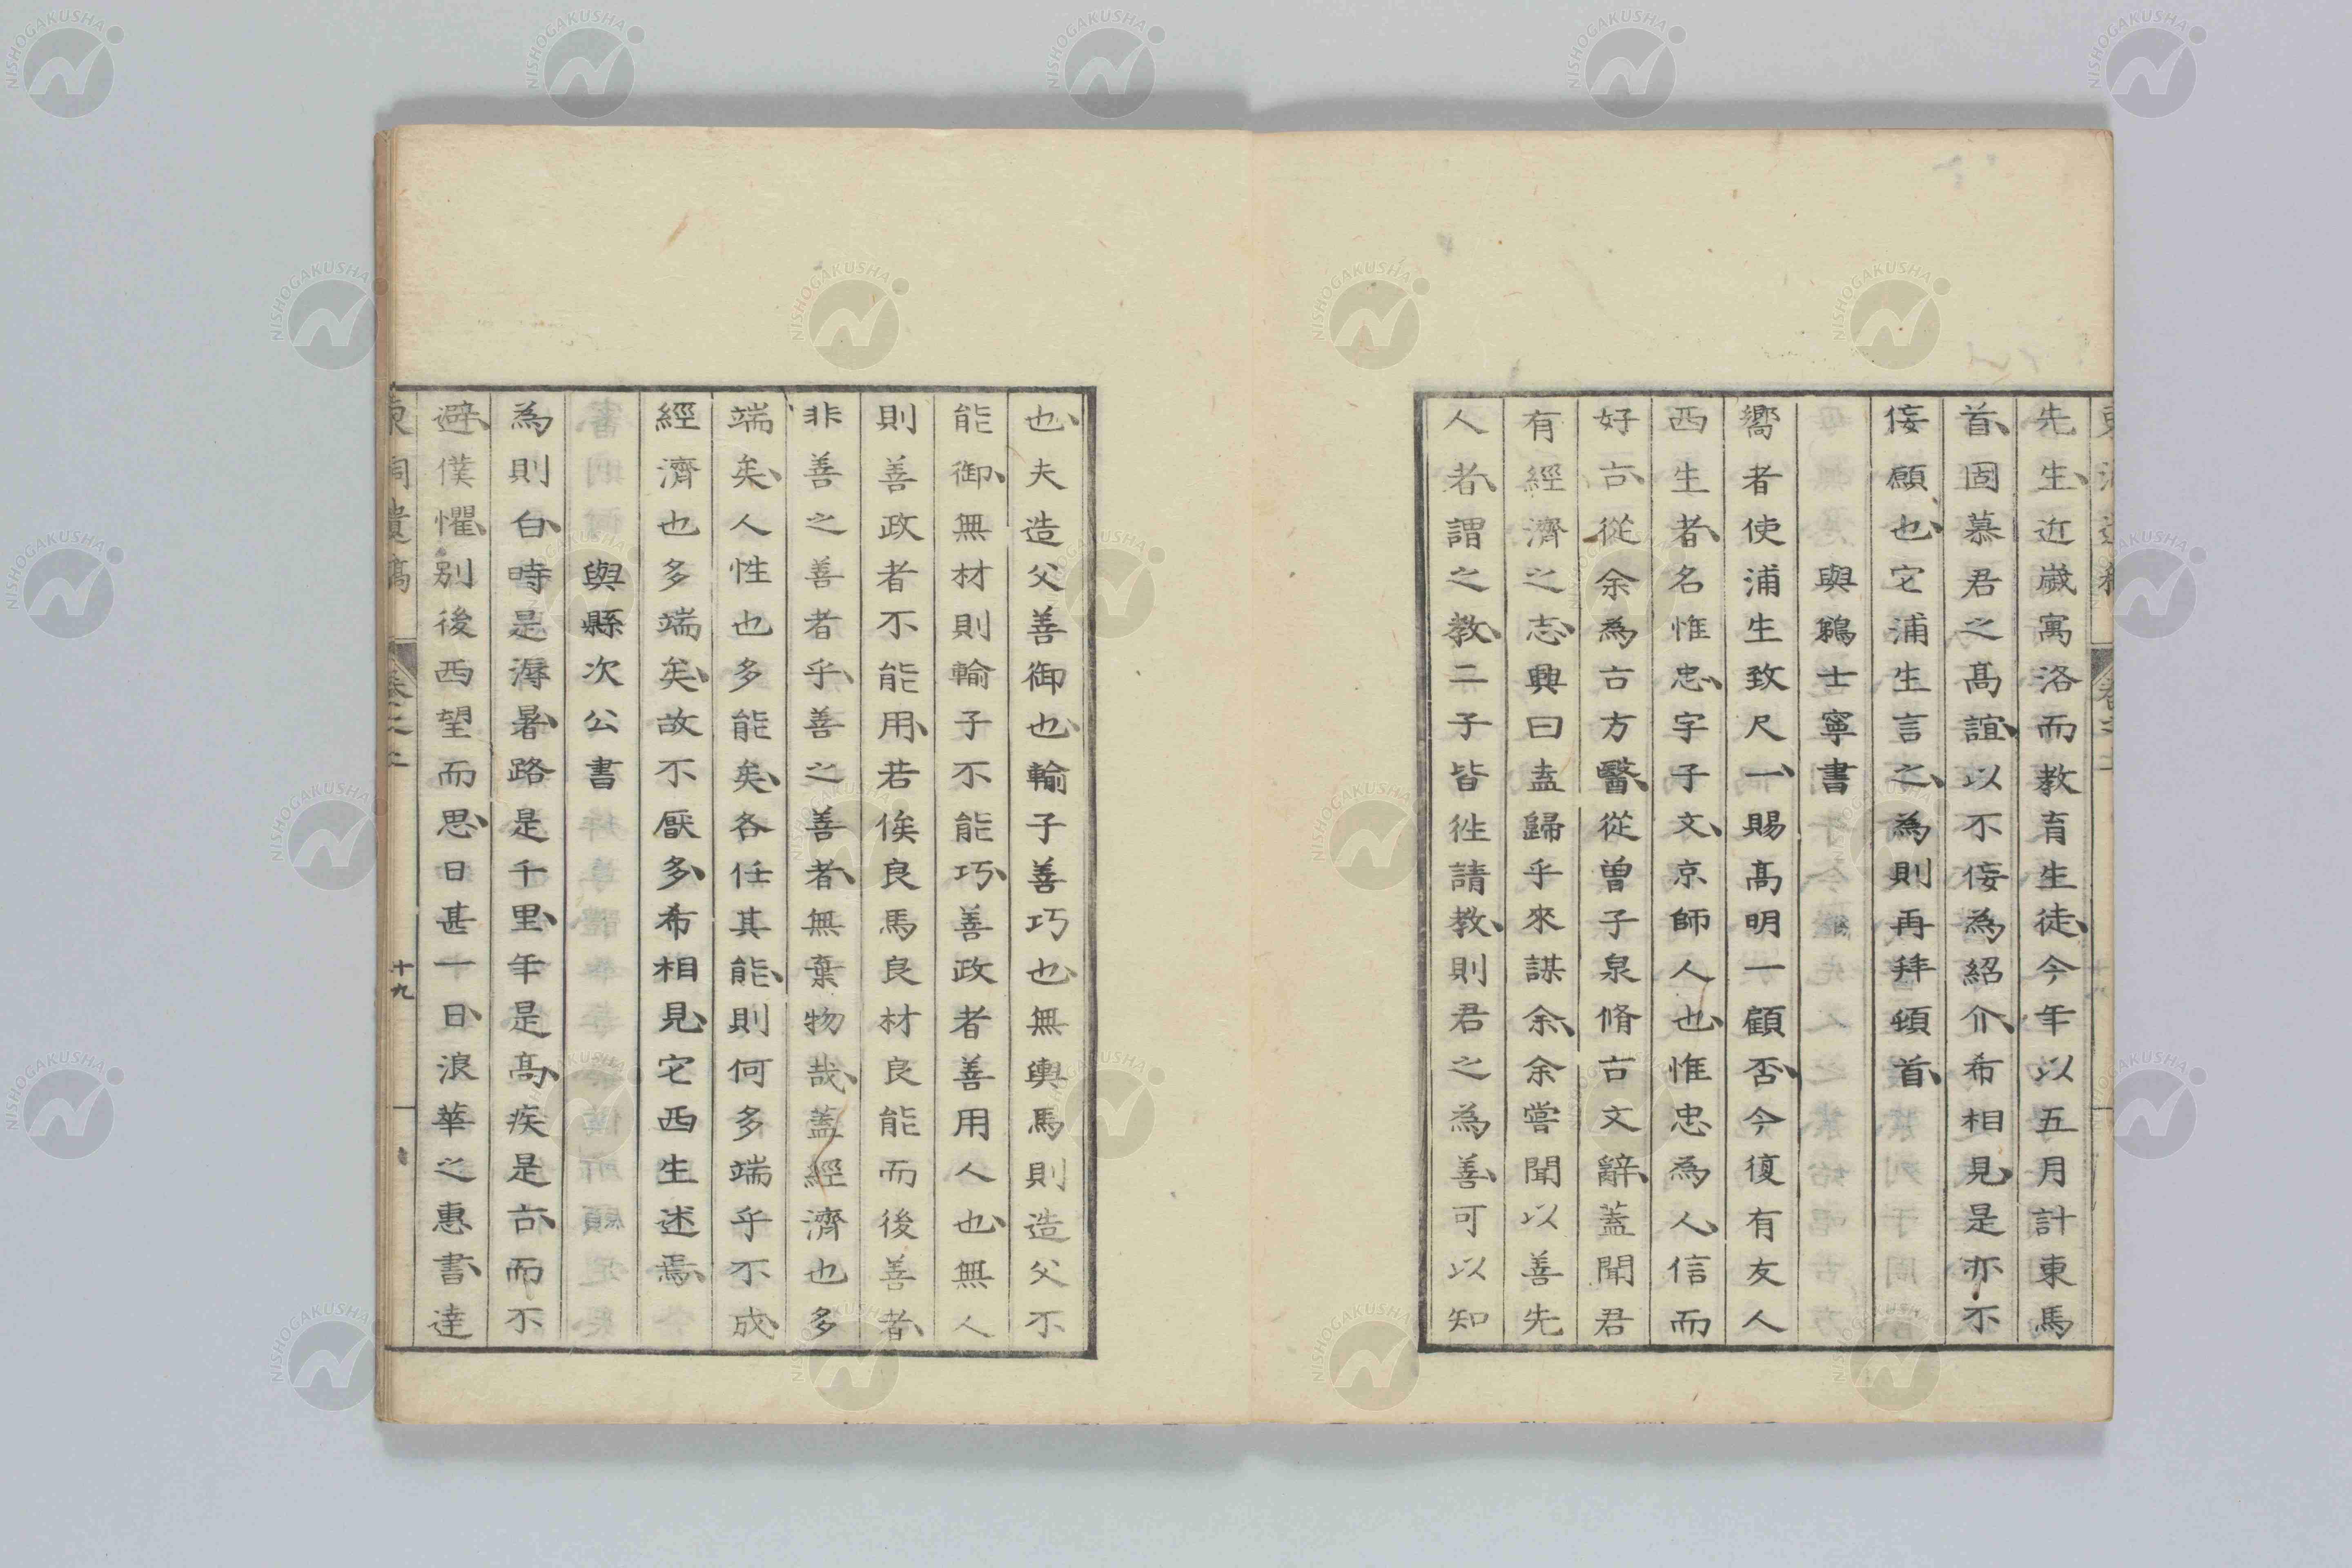 先生、近歲寓洛而教育生徒、今年以五月計東馬
首、固慕君之高誼、以不佞為紹介、希相見、是亦不
佞願也、它浦生言之、為則再拜頓首、
與鶴士寧書
嚮者使浦生致尺一、賜高明一顧否、今復有友人
西生者、名惟忠、字子文、京師人也、惟忠為人、信而
好古、從余為古方醫、從曽子泉脩古文辭、蓋聞君
有經濟之志、興曰盍歸乎來謀余、余嘗聞以善先
人者、謂之教、二子皆徃請教、則君之為善、可以知
也、夫造父善御也、輸子善巧也、無輿馬則造父不
能御、無材則輸子不能巧、善政者善用人也、無人
則善政者不能用、若俟良馬良材良能而後善者、
非善之善者乎、善之善者、無棄物哉、蓋經濟也多
端矣、人性也多能矣、各任其能、則何多端乎不成、
經濟也多端矣、故不厭多、希相見、它西生述焉、
與縣次公書
為則白、時是溽暑、路是千里、年是高、疾是古、而不
避、僕懼、別後西望而思、日甚一日、浪華之惠書、達
東洞遺稿 卷之上 十九
NISHOGAKUSHA